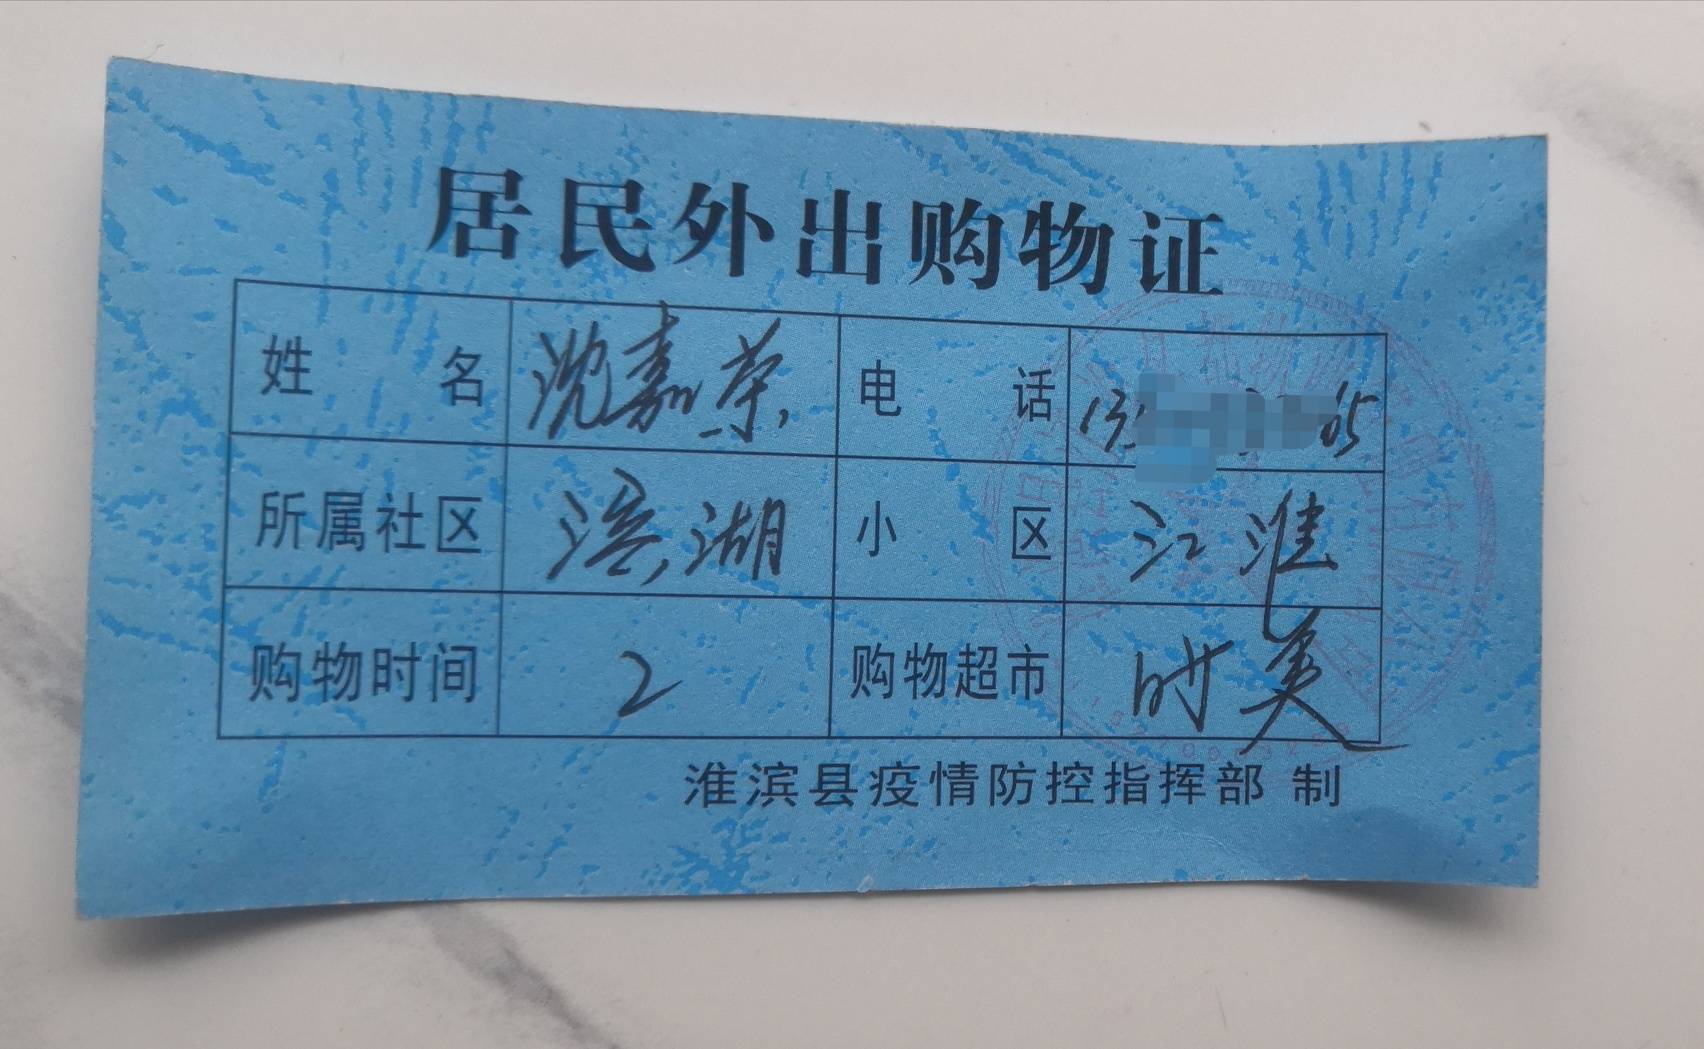 居民外出购物证
姓名 沈嘉荣 电话 13 05
所属社区 滨湖 小区 江淮
购物时间 2 购物超市 时美
淮滨县疫情防控指挥部 制